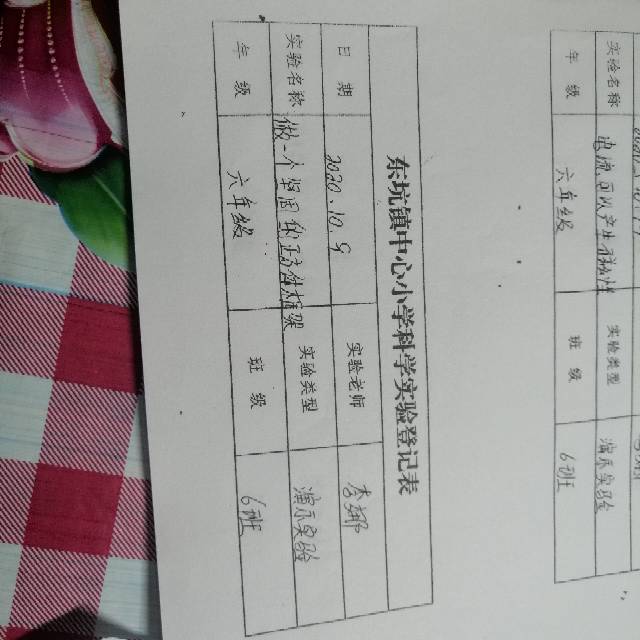 东坑镇中心小学科学实验登记表
日 期 2020.10.9 实验老师 李娜
实验名称 做一个坚固的正方体框架 实验类型 演示实验
年 级 六年级 班 级 6班
实验名称 电流可以产生磁性 实验类型 演示实验
年 级 六年级 班 级 6班